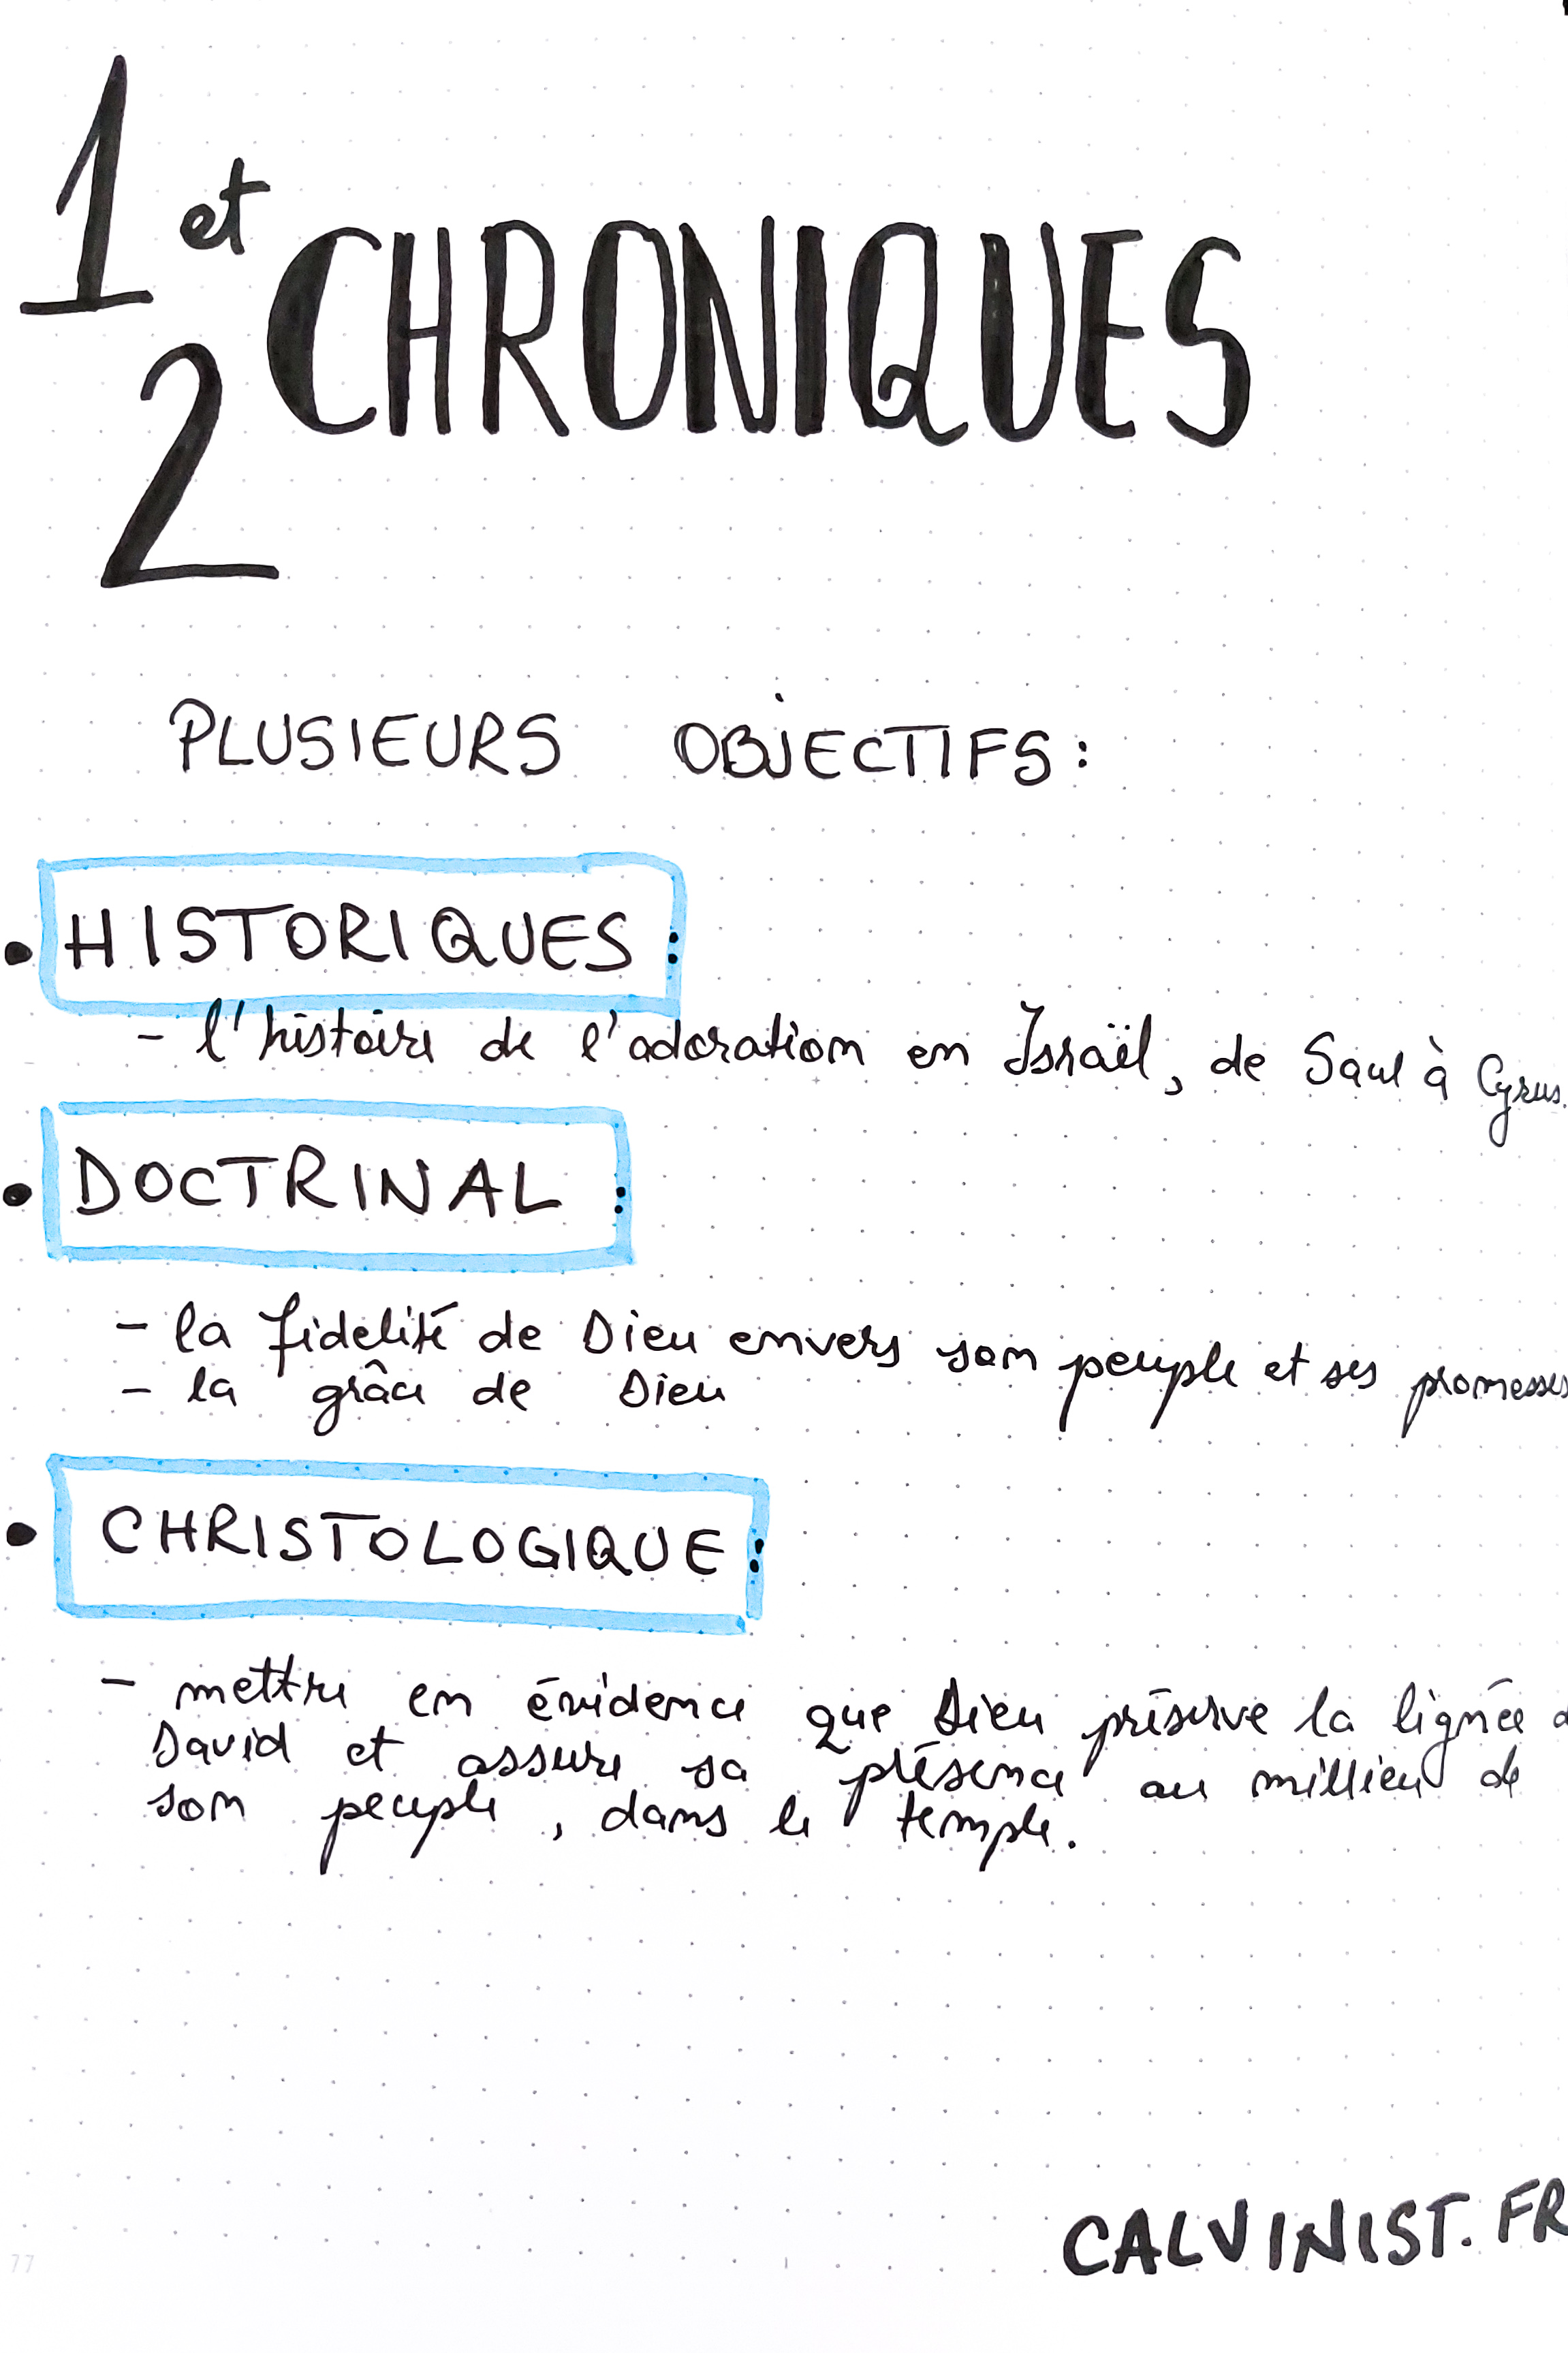 1 et
2 CHRONIQUES
PLUSIEURS OBJECTIFS :
• HISTORIQUES :
- l'histoire de l'adoration en Israël, de Saul à Cyrus.
• DOCTRINAL :
- la fidelité de Dieu envers son peuple et ses promesses
- la grâce de Dieu
• CHRISTOLOGIQUE :
- mettre en évidence que Dieu préserve la lignée
David et assure sa présence au milieu de
son peuple, dans le temple.
CALVINIST.FR
77